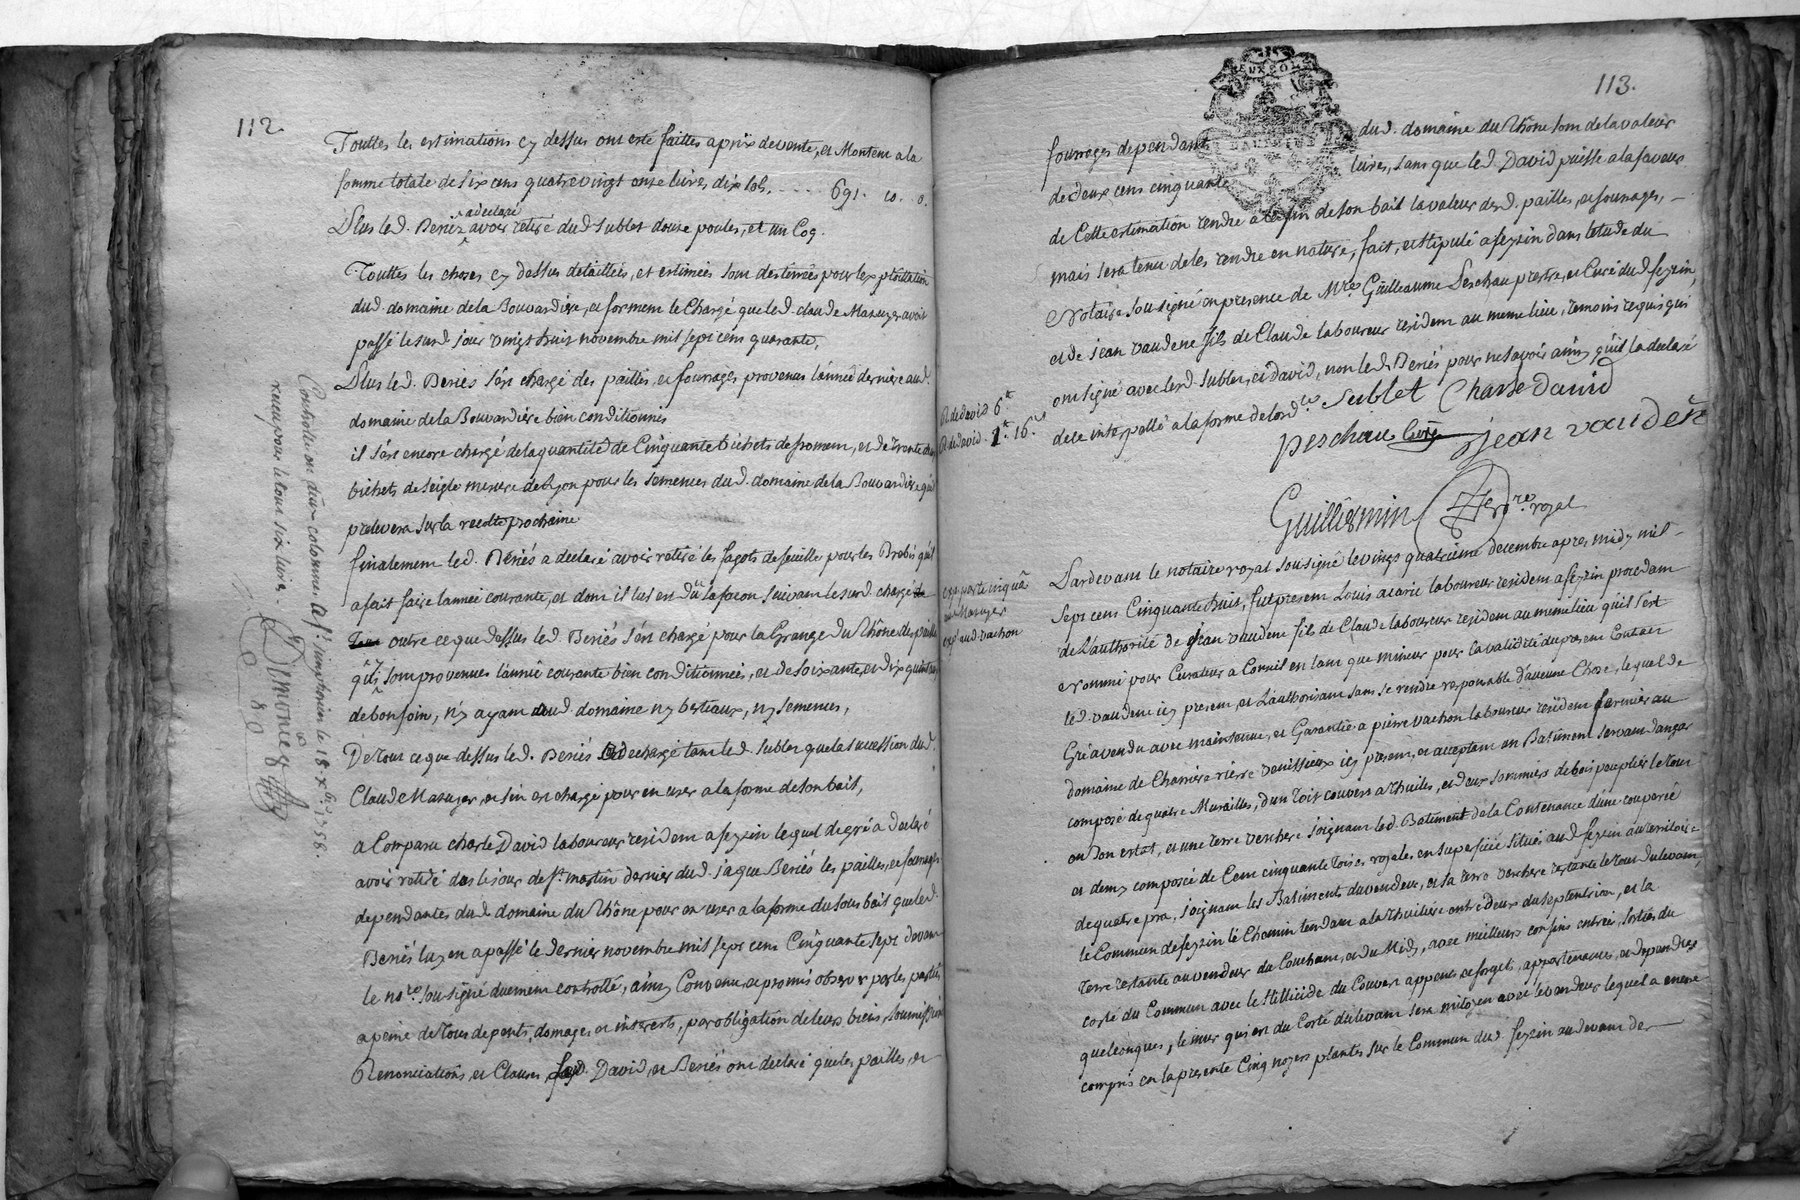 112.
Touttes les estimations cy dessus ont esté faittes a prix de vente, et Montent a la
somme totale de six cens quatrevingt onze livres dix sols. - - - - 691. 10. 0.
Plus led. Beriés a declaré avoir retiré dud Sublet douze poules, et un Coq.
Touttes les choses cy dessus detaillées, et estimées sont destinées pour lexploitation
dud. domaine de la Bouvardiere, et forment le Chargé que led. claude Mazuyer avoit
passé le susd jour vingt huit novembre mil sept cens quarante,
Plus led. Beriés s'est chargé des pailles, et fourrages provenus lannée derniere aud.
domaine de la Bouvardiere bien conditionnés
il s'est encore chargé de la quantité de Cinquante bichets de froment, et de trente
bichets de seigle mesure de Lyon pour les semences dud. domaine de la Bouvardiere quil
prelevera sur la recolte prochaine
finalement led. Beriés a declaré avoir retiré les fagots de feuille pour les Brebis qu'il
a fait faire lannée courante, et dont il luy est dû la façon suivant le susd chargé
outre ce que dessus led. Beriés s'est chargé pour la Grange du Rhône des pailles
qui sont provenues lannée courante bien conditionnées, et de soixante, et dix quintaux
de bon foin, n'y ayant aud. domaine ny bestiaux, ny semences,
De tout ce que dessus led. Beriés decharge tant led. Sublet que la succession dud.
Claude Mazuyer, et s'en est chargé pour en user a la forme de son bail,
a Comparu charle David laboureur resident a feyzin lequel de gré a declaré
avoir retiré des le jour de St. martin dernier dud. jaque Beriés les pailles, et fourrages
dependantes dud domaine du Rhône pour en user a la forme du sous bail que led.
Beriés luy en a passé le dernier novembre mil sept cens Cinquante sept devant
le nore. sousigné duement controllé, ainsy Convenu, et promis observer par les parties
a peine de tous depents, domages et interets, par obligation de leurs biens, soumissions
Renonciations, et Clauses. David, et Beriés ont declaré que les pailles, et
Controllé en deux colonnes a St. simphorien le 18 xbre. 1758.
receu pour le tout six livres.
113.
fourrages dependant dud. domaine du Rhône sont de la valeur
de deux cens cinquante livres, sans que led. David puisse a la faveur
de Cette estimation rendre a la fin de son bail la valeur desd. pailles, et fourrages, -
mais sera tenu de les rendre en nature, fait, et stipulé a feyzin dans letude du
Notaire sousigné en presence de Mre. Guilleaume Peschau prestre, et Curé dud feyzin,
et de jean vaudene fils de Claude laboureur resident au meme lieu, temoins requis qui
ont signé avec lesd Sublet, et david, non led. Beriés pour ne savoir ainsy qu'il la declaré
de ce interpellé a la forme de lordce.
Sublet Charle david
peschau Curé jean vauden
Guillermin nore. royal
R. de david 6lt
R. de david 1lt. 16s
expe. porte cinqua
au Mazuyer
expe. aud. vachon
Pardevant le notaire royal sousigné le vingt quatrieme decembre apres midy mil -
sept cens Cinquante huit, fut present Louis acarié laboureur resident a feyzin procedant
de L'authorité de jean vaudene fils de Claude laboureur resident au meme lieu qu'il s'est
Nommé pour Curateur a Conseil en tant que mineur pour la validité du present Contract
led. vaudene icy present, et L'authorisant sans se rendre responsable d'aucune Chose, lequel de
Gré a vendu avec maintenue, et Garantie a pierre vachon laboureur resident fermier au
domaine de Charriere rierre venissieux icy present, et acceptant un Batiment servant d'angar
composé de quatre Murailles, d'un Toit couvert a Thuiles, et deux sommiers de bois peuplier le tout
en son estat, et une terre verchere joignant led. Batiment de la Contenance d'une couperée
et demy composée de Cent cinquante toises royales en superficié situés aud. feyzin au territoire
de quatre pra, joignant les Batiments du vendeur, et sa terre verchere restante le tout du levant,
le Commun de feyzin le Chemin tendant a la Thuiliere entre deux du septentrion, et la
terre restante au vendeur du Couchant, et du Midy, avec meilleurs confins entrées, sorties du
costé du Commun avec le stillicide du Couvert appens, et forgets, appartenances, et dependces
quelconques, le mur qui est du Costé du levant sera mitoyen avec le vendeur lequel a encore
compris en la presente Cinq noyers plantés sur le Commun dud. feyzin au devant de